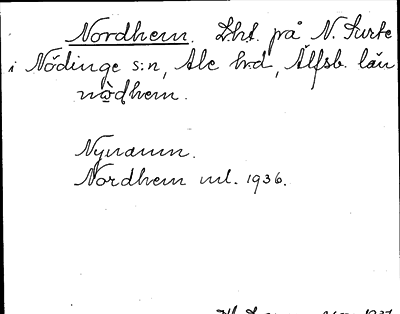 Nordhem. Lht. på N. Surte
i Nödinge s:n, Ale hrd, Älfsb. län
nὼḍhem.
Nynamn.
Nordhem ml. 1936.
1937